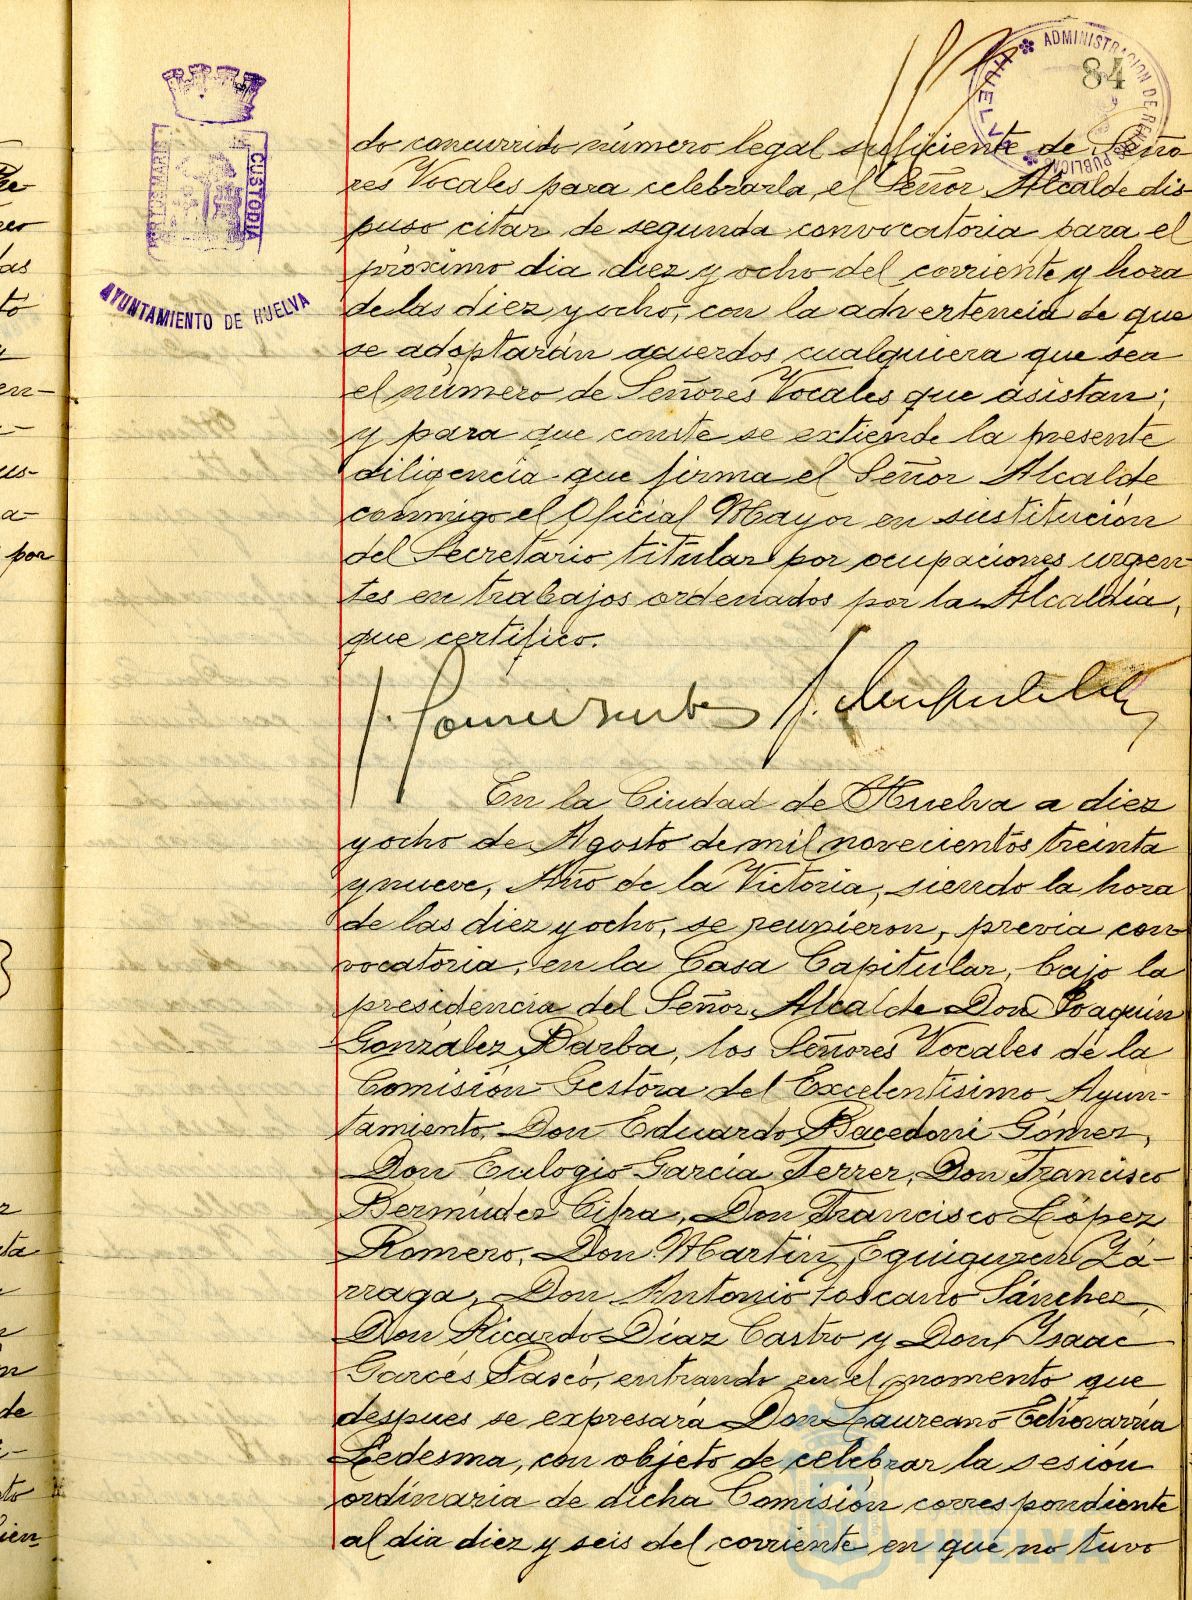 84
ADMINISTRACION DE RENTAS PUBLICAS
HUELVA
PORTUS MARIS
CUSTODIA
AYUNTAMIENTO DE HUELVA
do concurrido número legal suficiente de Seño
res Vocales para celebrarla, el Señor Alcalde dis-
puso citar de segunda convocatoria para el
próximo dia diez y ocho del corriente y hora
de las diez y ocho, con la advertencia de que
se adoptarán acuerdos cualquiera que sea
el número de Señores Vocales que asistan;
y para que conste se extiende la presente
diligencia que firma el Señor Alcalde
conmigo el Oficial Mayor en sustitución
del Secretario titular por ocupaciones urgen-
tes en trabajos ordenados por la Alcaldía,
que certifico.
En la Ciudad de Huelva a diez
y ocho de Agosto de mil novecientos treinta
y nueve, Año de la Victoria, siendo la hora
de las diez y ocho, se reunieron, previa con
vocatoria, en la Casa Capitular, bajo la
presidencia del Señor Alcalde Don Joaquín
González Barba, los Señores Vocales de la
Comisión Gestora del Excelentísimo Ayun-
tamiento, Don Eduardo Bacedoni Gómez,
Don Eulogio García Ferrer, Don Francisco
Bermúdez Cifra, Don Francisco López
Romero, Don Martín Eguiguren Zá-
rraga, Don Antonio Toscano Sánchez,
Don Ricardo Díaz Castro y Don Isaac
Garcés Pascó, entrando en el momento que
despues se expresará Don Laureano Echevarría
Ledesma, con objeto de celebrar la sesión
ordinaria de dicha Comisión correspondiente
al dia diez y seis del corriente en que no tuvo
HUELVA